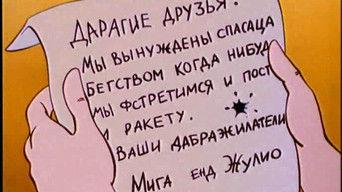 ДАРАГИЕ ДРУЗЬЯ!
МЫ ВЫНУЖДЕНЫ СПАСАЦА
БЕГСТВОМ КОГДА НИБУД
МЫ ФСТРЕТИМСЯ И ПОСТ
РАКЕТУ.
ВАШИ ДАБРАЖИЛАТИЛИ
МИГА ЕНД ЖУЛИО